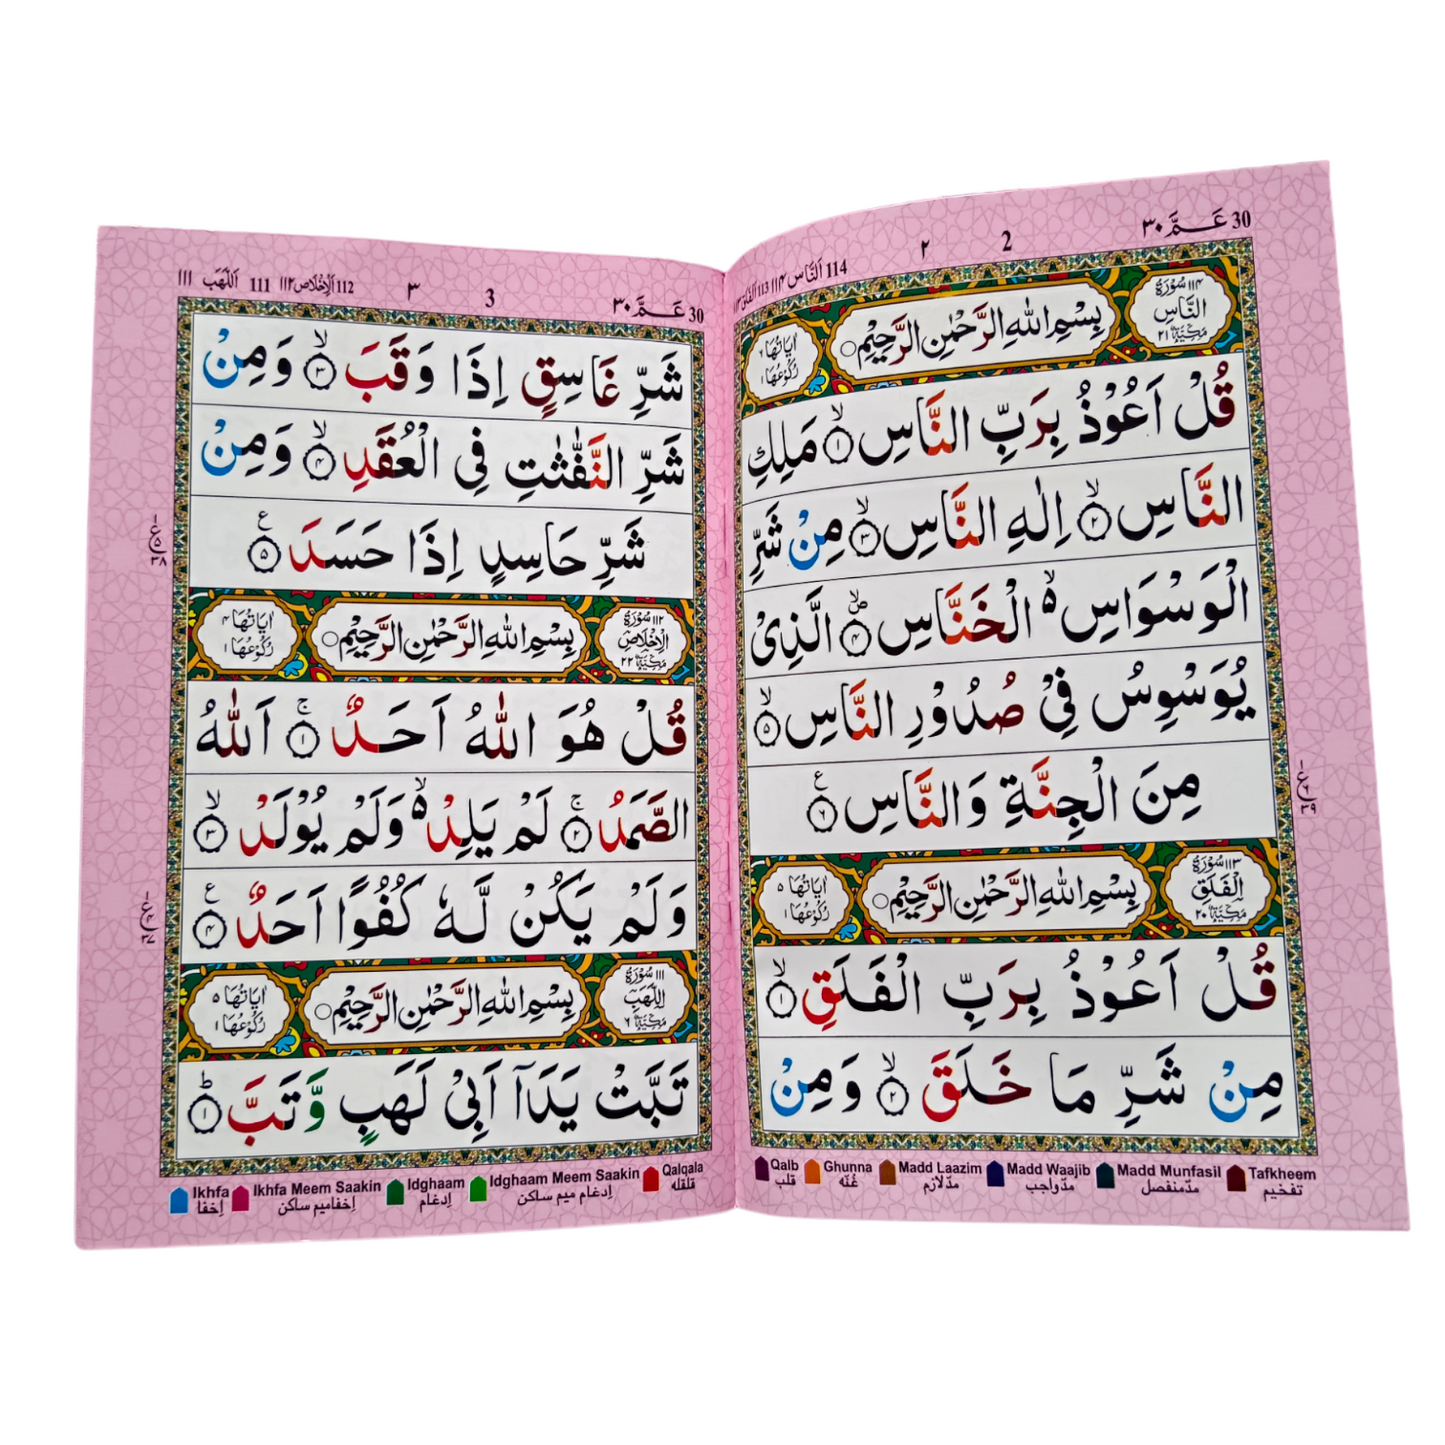 30 عَمَّ ٣٠
2 ٢
114 اَلنَّاس ١١٤ 113
١١٤ سُوْرَةُ النَّاسِ مَكِّيَّةٌ ٢١
بِسْمِ اللهِ الرَّحْمٰنِ الرَّحِيْمِ
اٰيَاتُهَا ٦ رُكُوْعُهَا ١
قُلْ اَعُوْذُ بِرَبِّ النَّاسِ ۙ﴿١﴾ مَلِكِ
النَّاسِ ۙ﴿٢﴾ اِلٰهِ النَّاسِ ۙ﴿٣﴾ مِنْ شَرِّ
الْوَسْوَاسِ ۙ۬ الْخَنَّاسِ ۪ۙ﴿٤﴾ الَّذِيْ
يُوَسْوِسُ فِيْ صُدُوْرِ النَّاسِ ۙ﴿٥﴾
مِنَ الْجِنَّةِ وَالنَّاسِ ﴿٦﴾ ع
١١٣ سُوْرَةُ الْفَلَقِ مَكِّيَّةٌ ٢٠
بِسْمِ اللهِ الرَّحْمٰنِ الرَّحِيْمِ
اٰيَاتُهَا ٥ رُكُوْعُهَا ١
قُلْ اَعُوْذُ بِرَبِّ الْفَلَقِ ۙ﴿١﴾
مِنْ شَرِّ مَا خَلَقَ ۙ﴿٢﴾ وَمِنْ
Qalb قلب
Ghunna غُنّه
Madd Laazim مدّلازم
Madd Waajib مدّواجب
Madd Munfasil مدّمنفصل
Tafkheem تفخیم
30 عَمَّ ٣٠
3 ٣
112 اَلْاِخْلَاص ١١٢ 111 اَللَّهَب ١١١
شَرِّ غَاسِقٍ اِذَا وَقَبَ ۙ﴿٣﴾ وَمِنْ
شَرِّ النَّفّٰثٰتِ فِي الْعُقَدِ ۙ﴿٤﴾ وَمِنْ
شَرِّ حَاسِدٍ اِذَا حَسَدَ ﴿٥﴾ ع
١١٢ سُوْرَةُ الْاِخْلَاصِ مَكِّيَّةٌ ٢٢
بِسْمِ اللهِ الرَّحْمٰنِ الرَّحِيْمِ
اٰيَاتُهَا ٤ رُكُوْعُهَا ١
قُلْ هُوَ اللّٰهُ اَحَدٌ ۚ﴿١﴾ اَللّٰهُ
الصَّمَدُ ۚ﴿٢﴾ لَمْ يَلِدْ ۙ۬ وَلَمْ يُوْلَدْ ۙ﴿٣﴾
وَلَمْ يَكُنْ لَّهٗ كُفُوًا اَحَدٌ ﴿٤﴾ ع
١١١ سُوْرَةُ اللَّهَبِ مَكِّيَّةٌ ٦
بِسْمِ اللهِ الرَّحْمٰنِ الرَّحِيْمِ
اٰيَاتُهَا ٥ رُكُوْعُهَا ١
تَبَّتْ يَدَآ اَبِيْ لَهَبٍ وَّتَبَّ ؕ﴿١﴾
Ikhfa اِخفا
Ikhfa Meem Saakin اِخفامیم ساکن
Idghaam اِدغام
Idghaam Meem Saakin اِدغام میم ساکن
Qalqala قلقله